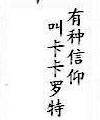 有种信仰
叫卡卡罗特